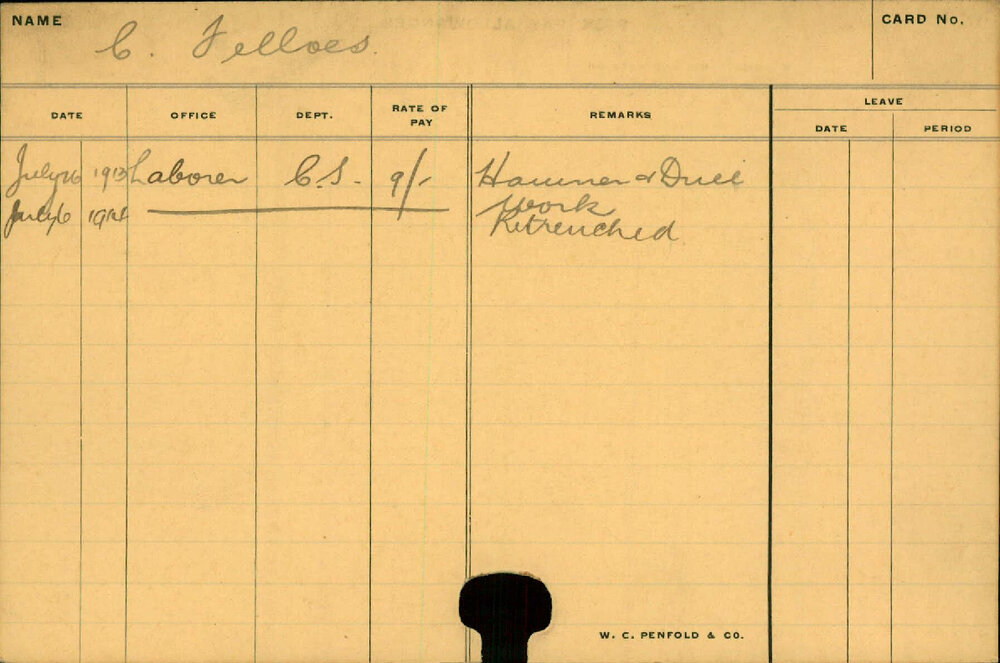 NAME
C. Felloes.
CARD No.
DATE OFFICE DEPT. RATE OF PAY REMARKS LEAVE
DATE PERIOD
July 16 1913 Laborer C.S. 9/- Hammer & Drill
work
July 6 1914 Retrenched
W. C. PENFOLD & CO.